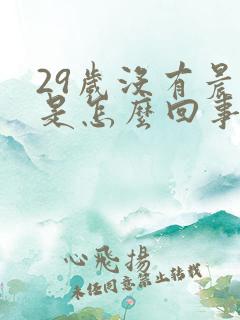 29歲沒有晨
是怎麼回事
心飛揚
未经同意禁止转载